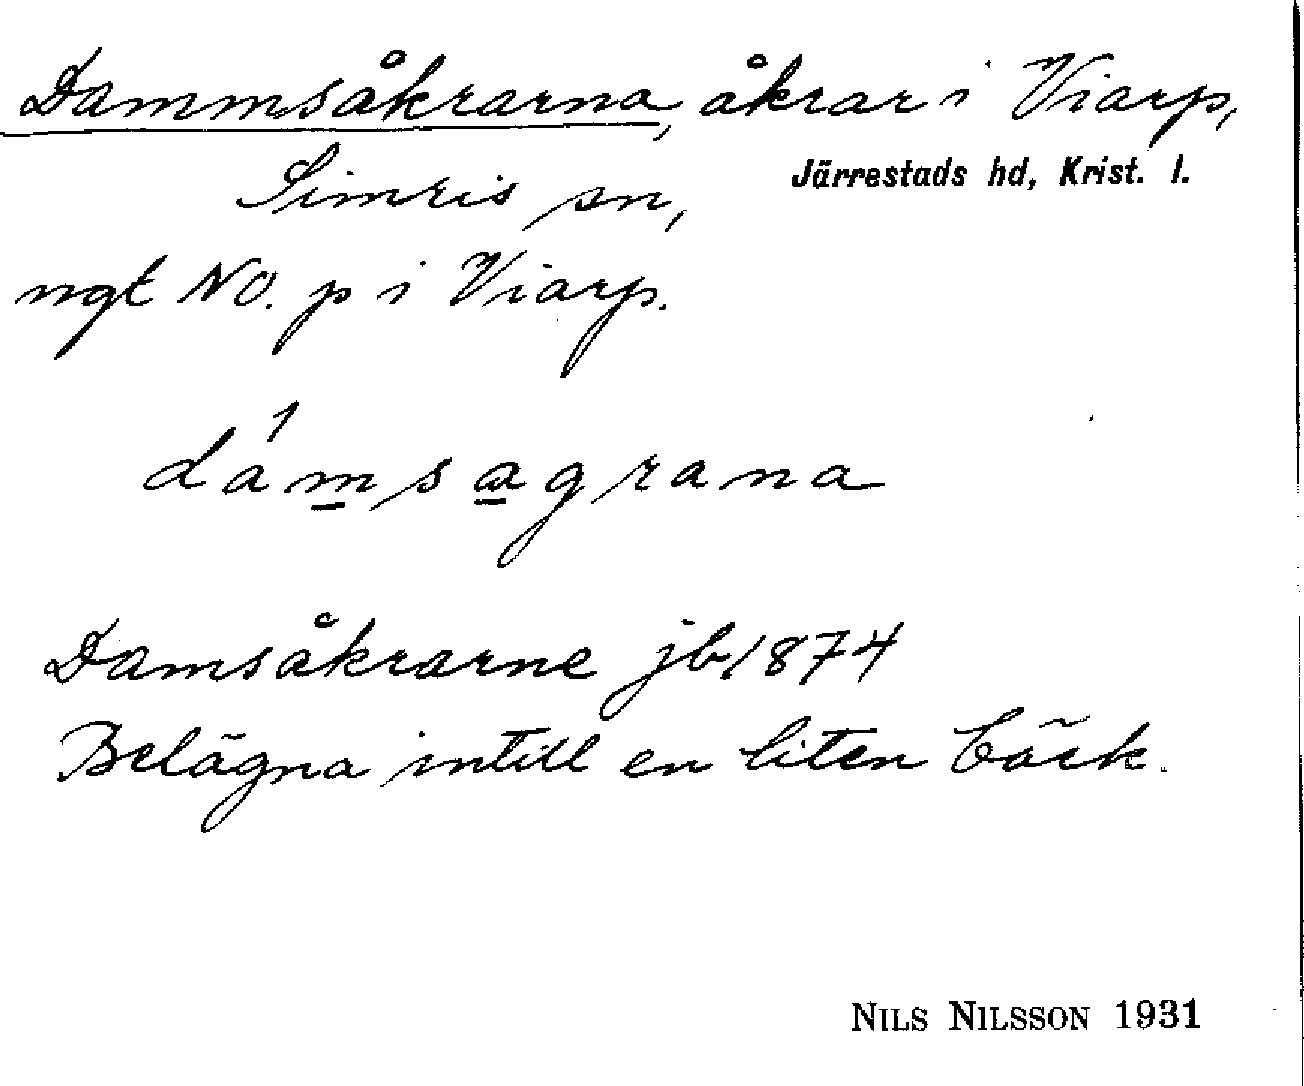 Dammsåkrarna, åkrar i Viarp,
Simris sn, Järrestads hd, Krist. l.
ngt NO. p i Viarp.
dámsagrana
Damsåkrarne jb 1874
Belägna intill en liten bäck.
NILS NILSSON 1931